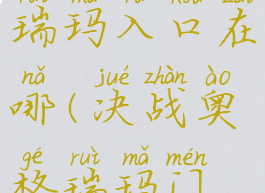 瑞玛入口在
nǎ jué zhàn ào
哪(决战奥
gé ruì mǎ mén
格瑞玛门